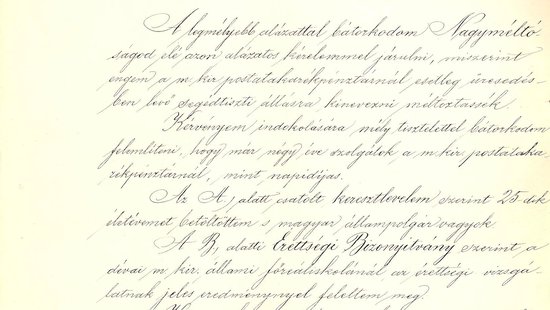 A legmélyebb alázattal bátorkodom Nagyméltó-
ságod elé azon alázatos kérelemmel járulni, miszerint
engem a m. kir. postatakarékpénztárnál esetleg üresedés-
ben levő segédtiszti állásra kinevezni méltóztassék.
Kérvényem indokolására mély tisztelettel bátorkodom
felemlíteni, hogy már négy éve szolgálok a m. kir. postataka
rékpénztárnál, mint napidíjas.
Az A, alatt csatolt keresztlevelem szerint 25-dik
életévemet betöltöttem s magyar állampolgár vagyok
A B, alatti Érettségi Bizonyítvány szerint a
dévai m. kir. állami főreáliskolánál az érettségi vizsgá-
latnak jeles eredménynyel feleltem meg.